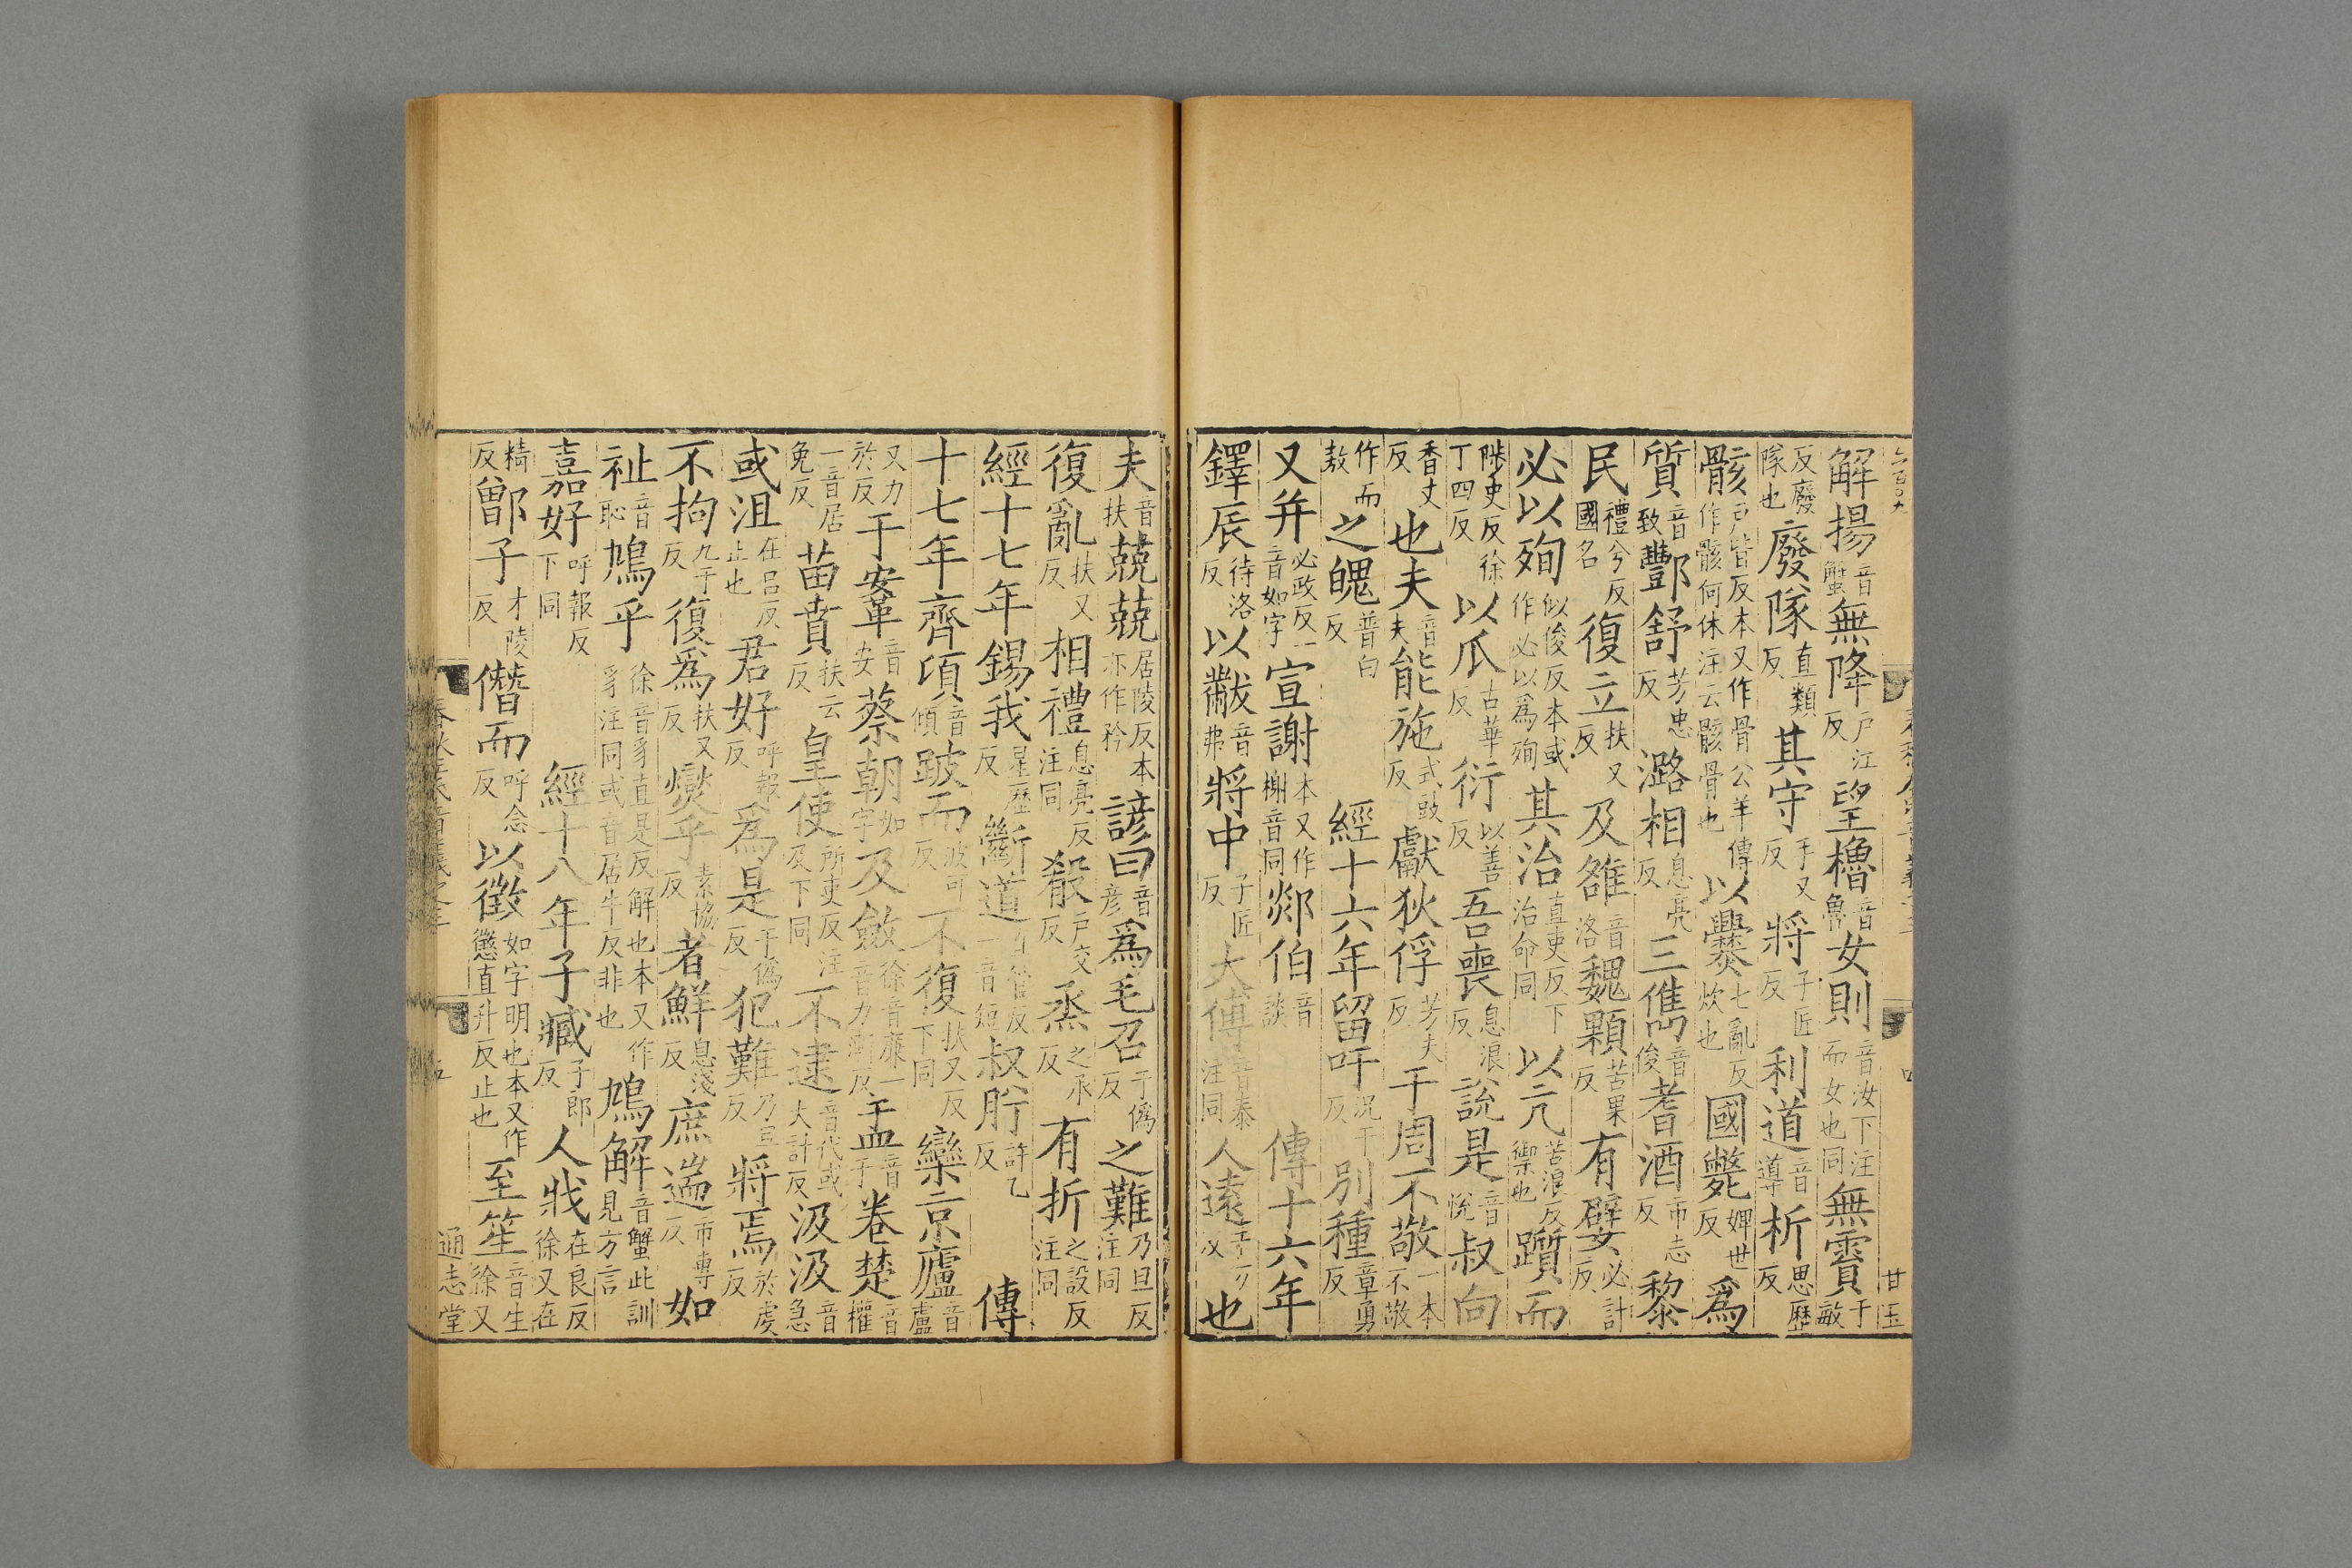 解揚音蟹無降戶江反望櫓音魯女則音汝下注而女也同無霣于敏
反廢隊也廢隊直類反其守手又反將子匠反利道音導析思歷反
骸戶皆反本又作骨公羊傳作骸何休注云骸骨也以爨七亂反炊也國斃婢世反爲
質音致酆舒芳忠反潞相息亮反三儁音俊耆酒市志反黎
民禮兮反國名復立扶又反及雒音洛魏顆苦果反有嬖必計反
必以殉似俊反本或作必以爲殉其治直吏反下治命同以亢苦浪反禦也躓而
陟吏反徐丁四反以爪古華反衍以善反吾喪息浪反說是音悅叔向
香丈反也夫音夫能施式豉反獻狄俘芳夫反于周不敬一本不敬
作而敖之魄普白反 經十六年留吁況于反別種章勇反
又并必政反一音如字宣謝本又作榭音同郯伯音談 傳十六年
鐸辰待洛反以黻音弗將中子匠反大傅音泰注同人遠于万反也
夫音扶兢兢居陵反本亦作矜諺曰音彥爲毛召于僞反之難乃旦反注同
復亂扶又反相禮息亮反注同殽戶交反烝之承反有折之設反注同
經十七年錫我星歷反斷道直管反一音短叔肸許乙反 傳
十七年齊頃音傾跛而波可反不復扶又反下同欒京廬音盧
又力於反于鞌音安蔡朝如字及斂徐音廉一音力漸反盂音于卷楚音權
一音居免反苗賁扶云反皇使所吏反注及下同不逮音代或大計反汲汲音急
或沮在呂反止也君好呼報反爲是于僞反犯難乃旦反將焉於虔反
不拘九于反復爲扶又反爕乎素協反者鮮息淺反庶遄市專反如
祉音恥鳩乎徐音豸直是反解也本又作豸注同或音居牛反非也鳩解音蟹此訓見方言
嘉好呼報反下同 經十八年子臧子郎反人戕在良反徐又在
精反鄫子才陵反僭而呼念反以徵如字明也本又作懲直升反止也至笙音生徐又
通志堂